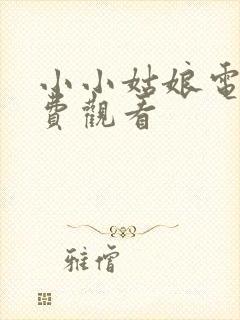 小小姑娘電
費觀看
雅僧